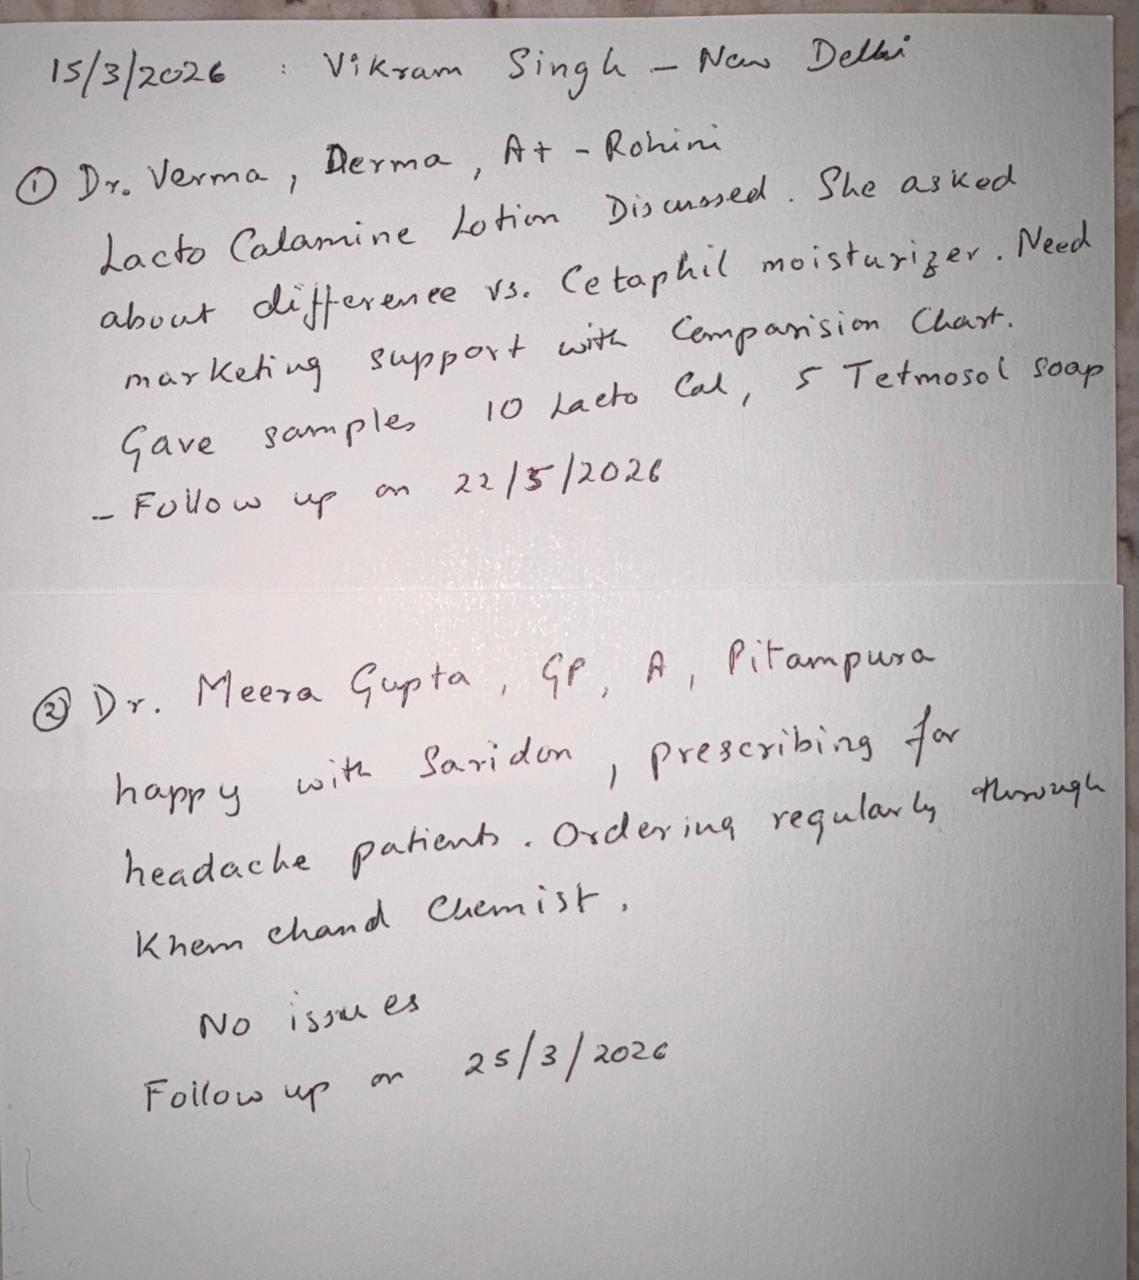 15/3/2026 : Vikram Singh - New Delhi
① Dr. Verma, Derma, A+ - Rohini
Lacto Calamine Lotion Discussed. She asked
about difference vs. Cetaphil moisturizer. Need
marketing support with Comparision Chart.
Gave samples 10 Lacto Cal, 5 Tetmosol soap
- Follow up on 22/5/2026
② Dr. Meera Gupta, GP, A, Pitampura
happy with Saridon, prescribing for
headache patients. Ordering regularly through
Khem chand Chemist.
No issues
Follow up on 25/3/2026